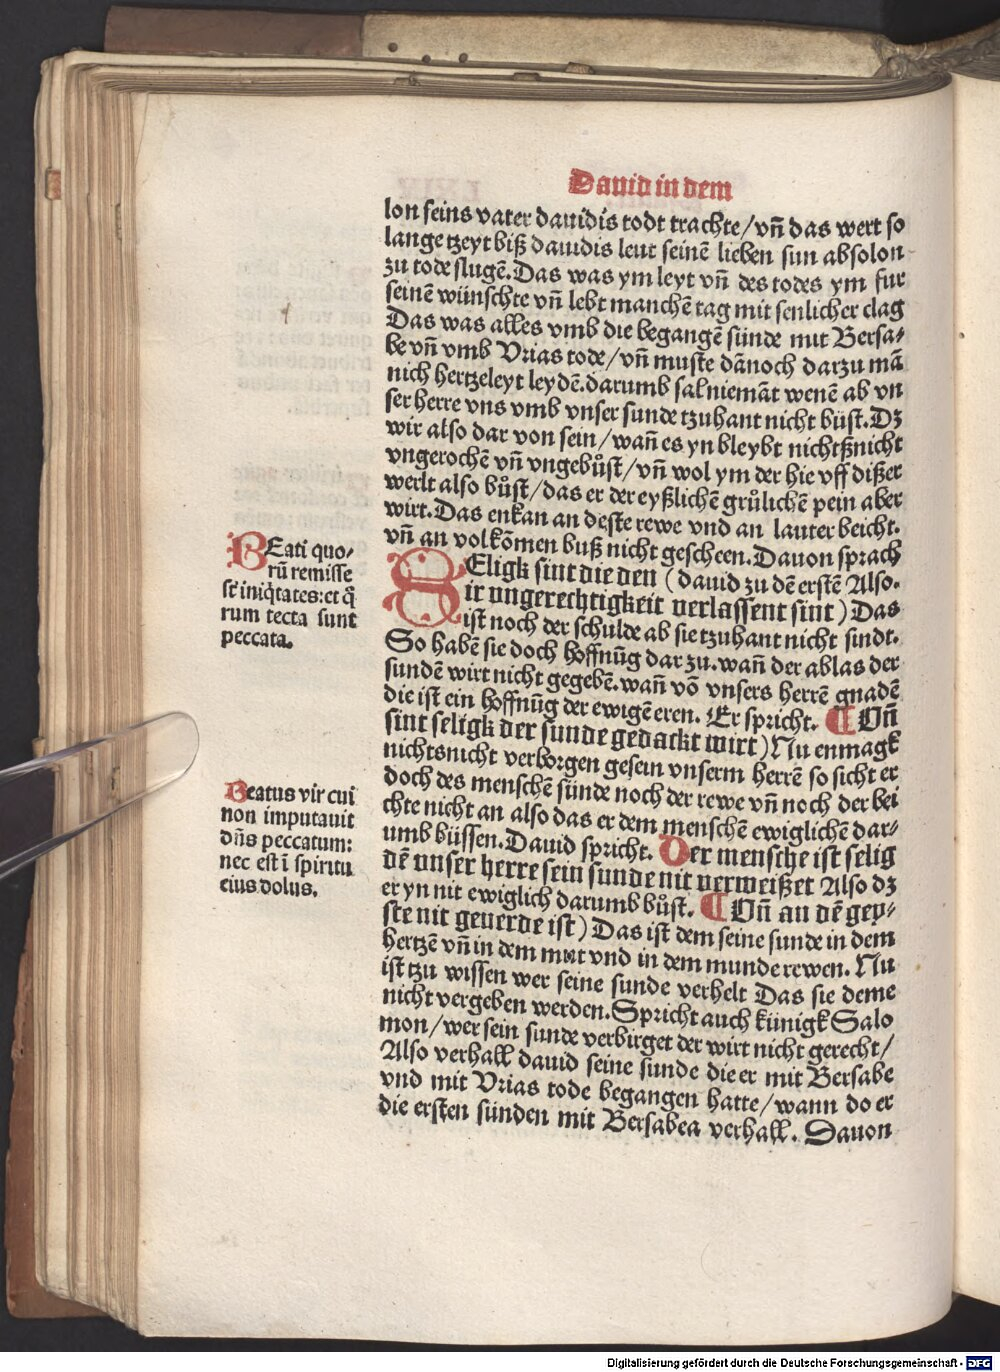 Dauid in dem
lon seins vater dauidis todt trachte/vn̄ das wert so
lange tzeyt biß dauidis leut seinē lieben sun absolon
zu tode slugē. Das was ym leyt vn̄ des todes ym fur
seinē wünschte vn̄ lebt manchē tag mit senlicher clag
Das was alles vmb die begangē sünde mit Bersa⸗
be vn̄ vmb Vrias tode/vn̄ muste dānoch darzu mā
nich hertzeleyt leydē. darumb sal niemāt wenē ab vn
ser herre vns vmb vnser sunde tzuhant nicht büst. Dz
wir also dar von sein/wan̄ es yn bleybt nichtßnicht
vngerochē vn̄ vngebůst/vn̄ wol ym der hie vff dißer
werlt also bůst/das er der eyßlichē grůlichē pein aber
wirt. Das enkan an deste rewe vnd an lauter beicht.
vn̄ an volkōmen buß nicht gescheen. Dauon sprach
SEligk sint die den (dauid zu dē erstē Also.
ir ungerechtigkeit verlassent sint) Das
ist noch der schulde ab sie tzuhant nicht sindt.
So habē sie doch hoffnūg dar zu. wan̄ der ablas der
sundē wirt nicht gegebē. wan̄ vō vnsers herrē gnadē
die ist ein hoffnūg der ewigē eren. Er spricht. ¶ Vn̄
sint seligk der sunde gedackt wirt) Nu enmagk
nichtsnicht verborgen gesein vnserm herrē so sicht er
doch des menschē sünde noch der rewe vn̄ noch der bei
chte nicht an also das er dem menschē ewiglichē dar⸗
umb büssen. Dauid spricht. Der mensche ist selig
dē unser herre sein sunde nit verweißet Also dz
er yn nit ewiglich darumb bůst. ¶ Vn̄ an dē gey⸗
ste nit geuerde ist) Das ist dem seine sunde in dem
hertzē vn̄ in dem mut vnd in dem munde rewen. Nu
ist tzu wissen wer seine sunde verhelt Das sie deme
nicht vergeben werden. Spricht auch künigk Salo
mon/wer sein sunde verbirget der wirt nicht gerecht/
Also verhall dauid seine sunde die er mit Bersabe
vnd mit Vrias tode begangen hatte/wann do er
die ersten sünden mit Bersabea verhall. Dauon
BEati quo⸗
rū remisse
st̄ iniq̄tates: et q̄
rum tecta sunt
peccata.
Beatus vir cui
non imputauit
dn̄s peccatum:
nec est ī spiritu
eius dolus.
Digitalisierung gefördert durch die Deutsche Forschungsgemeinschaft - DFG